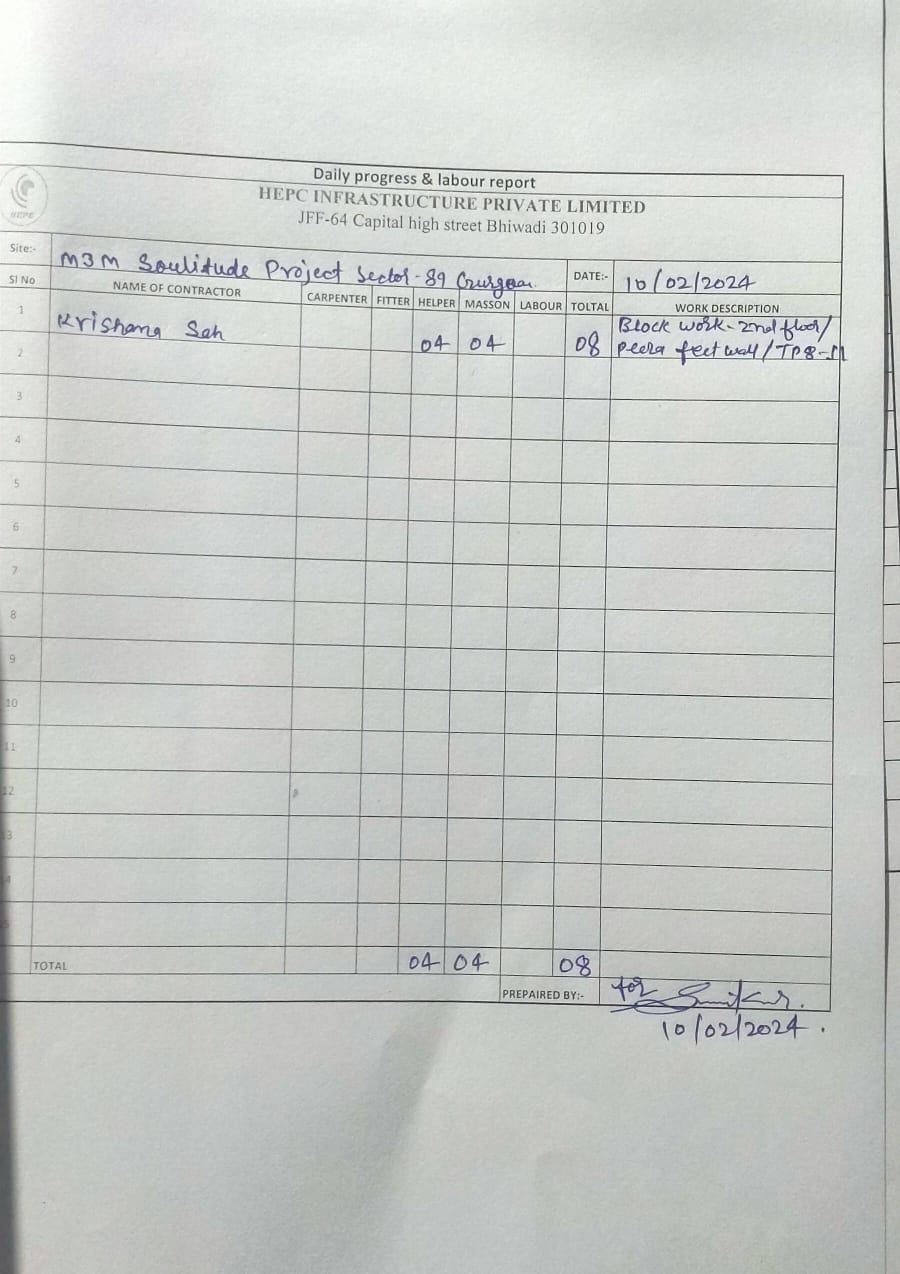 Daily progress & labour report
HEPC INFRASTRUCTURE PRIVATE LIMITED
JFF-64 Capital high street Bhiwadi 301019
HEPC
Site:- M3M Soulitude Project Sector-89 Gurgaon. DATE:- 10/02/2024
Sl No NAME OF CONTRACTOR CARPENTER FITTER HELPER MASSON LABOUR TOLTAL WORK DESCRIPTION
1 Krishana Sah 04 04 08 Block work-2nd floor/
feet wall/TP8-
2
3
4
5
6
7
8
9
10
11
12
13
TOTAL 04 04 08
PREPAIRED BY:- for
10/02/2024.